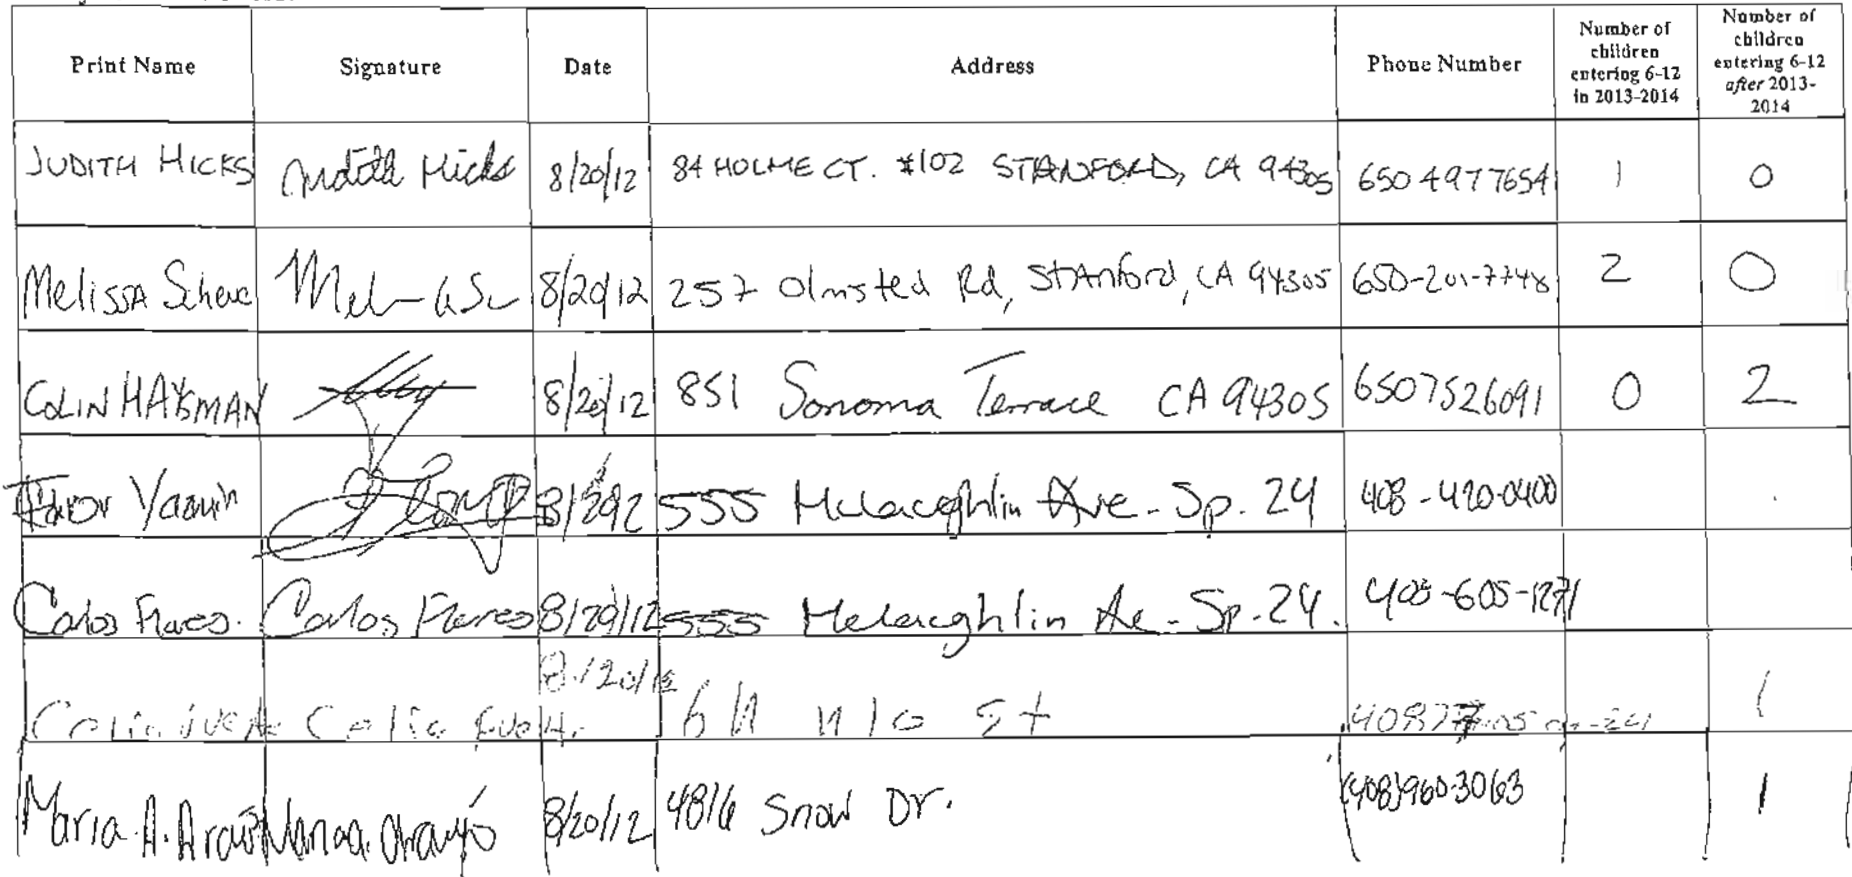 Print Name Signature Date Address Phone Number Number of children entering 6-12 in 2013-2014 Number of children entering 6-12 after 2013-2014
JUDITH HICKS Judith Hicks 8/20/12 84 HOLME CT. #102 STANFORD, CA 94305 650 4977654 1 0
MelissA 8/20/12 257 Olmsted Rd, StAnford, CA 94305 650-201-7748 2 0
COLIN HAYSMAN 8/20/12 851 Sonoma Terrace CA 94305 6507526091 0 2
Yazmin 555 Mclaughlin Ave. Sp. 24 408-420-0400
Carlos Flores. Carlos Flores 8/20/12 555 Mclaughlin Av. Sp. 24. 408-605-1271
8/20/12 St 1
Maria A. Araujo Maria A. Araujo 8/20/12 4816 Snow Dr. (408)960-3063 1